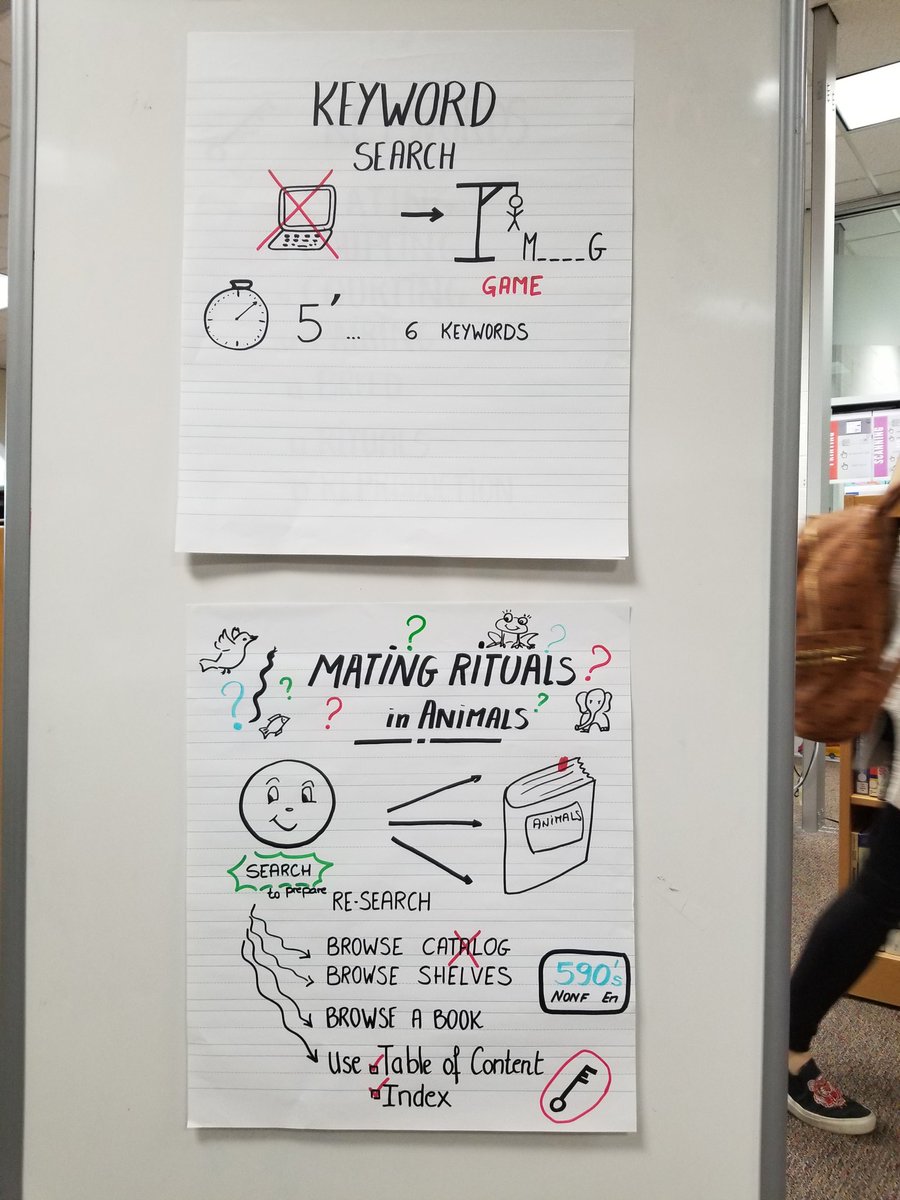 KEYWORD
SEARCH
M____G
GAME
5' ... 6 KEYWORDS
PRINTING
SCANNING
? ? ? ? ? ? ? ?
MATING RITUALS
in ANIMALS
ANIMALS
SEARCH
to prepare
RE-SEARCH
BROWSE CATALOG
BROWSE SHELVES
590's
NONF En
BROWSE A BOOK
Use Table of Content
Index